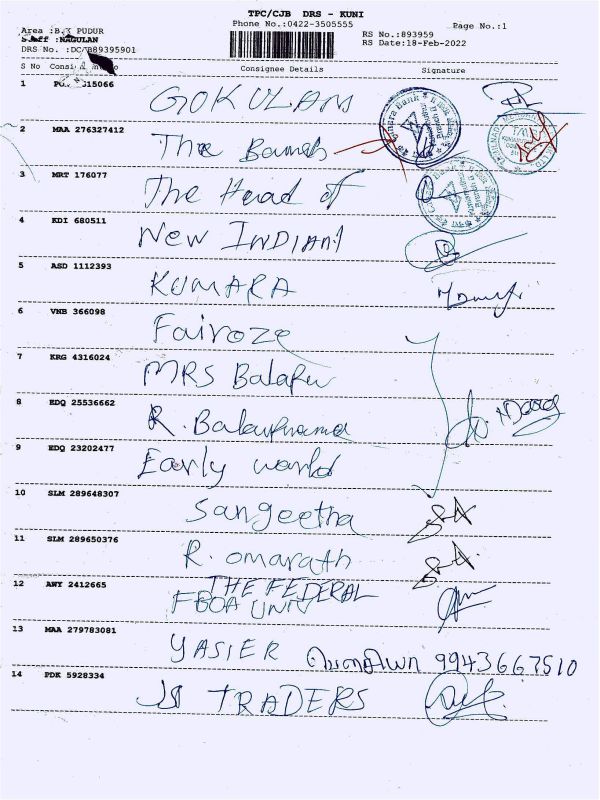 TPC/CJB DRS - KUNI
Phone No.:0422-3505555
Page No.:1
Area :B.K PUDUR
Staff :NAGULAN
DRS No. :DC/B89395901
RS No.:893959
RS Date:18-Feb-2022
S No Consignee Details Signature
1 GOKULAM
2 MAA 276327412 The
Canara Bank
3 MRT 176077 The Head of
4 KDI 680511 New INDIAN
5 ASD 1112393 KUMARA
6 VNB 366098 Fairoze
7 KRG 4316024 MRS
8 EDQ 25536662 R.
9 EDQ 23202477 Early world
10 SLM 289648307 Sangeetha
11 SLM 289650376 R. omarath
12 ANY 2412665 THE FEDERAL
FBOA UNIV
13 MAA 279783081 YASIER 9943667510
14 PDK 5928334 TRADERS